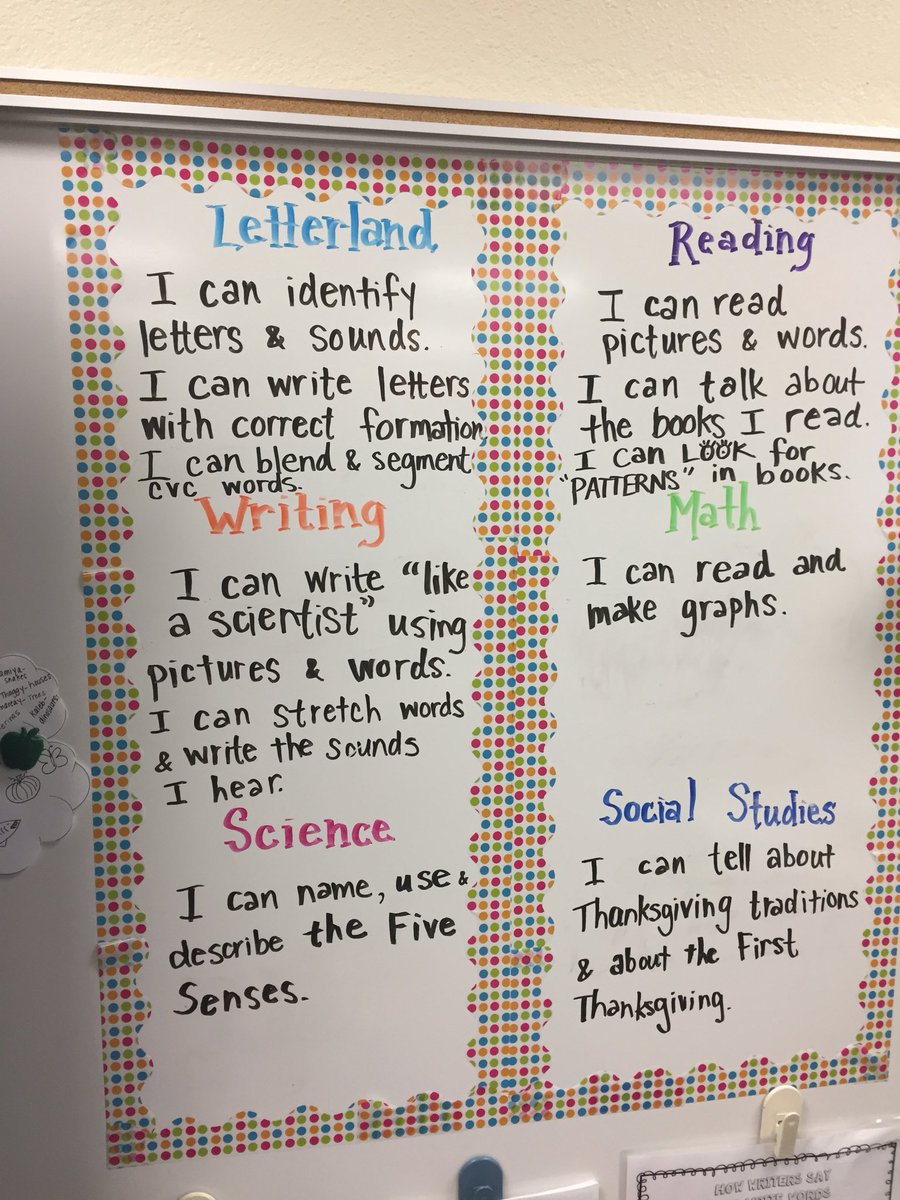 Letterland
I can identify
letters & sounds.
I can write letters
with correct formation.
I can blend & segment
cvc words.
Writing
I can write "like
a scientist" using
pictures & words.
I can stretch words
& write the sounds
I hear.
Science
I can name, use &
describe the Five
Senses.
Reading
I can read
pictures & words.
I can talk about
the books I read.
I can LOOK for
"PATTERNS" in books.
Math
I can read and
make graphs.
Social Studies
I can tell about
Thanksgiving traditions
& about the First
Thanksgiving.
snakes
houses
Trees
Kaleb
dinosaurs
HOW WRITERS SAY
WORDS